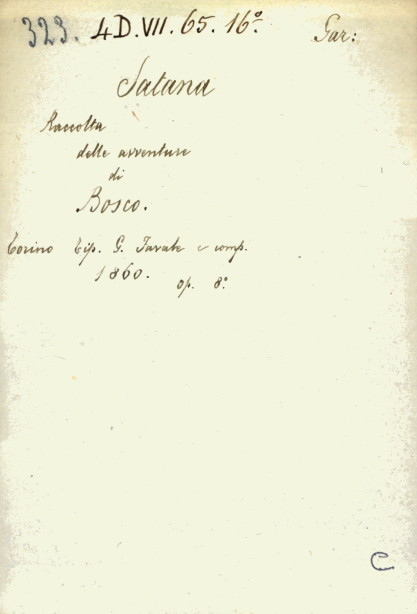 323. 4 D. VII. 65. 16º. Gar:
Satana
Raccolta
delle avventure
di
Bosco.
Torino Tip. G. Favale e comp.
1860. op. 8º
C